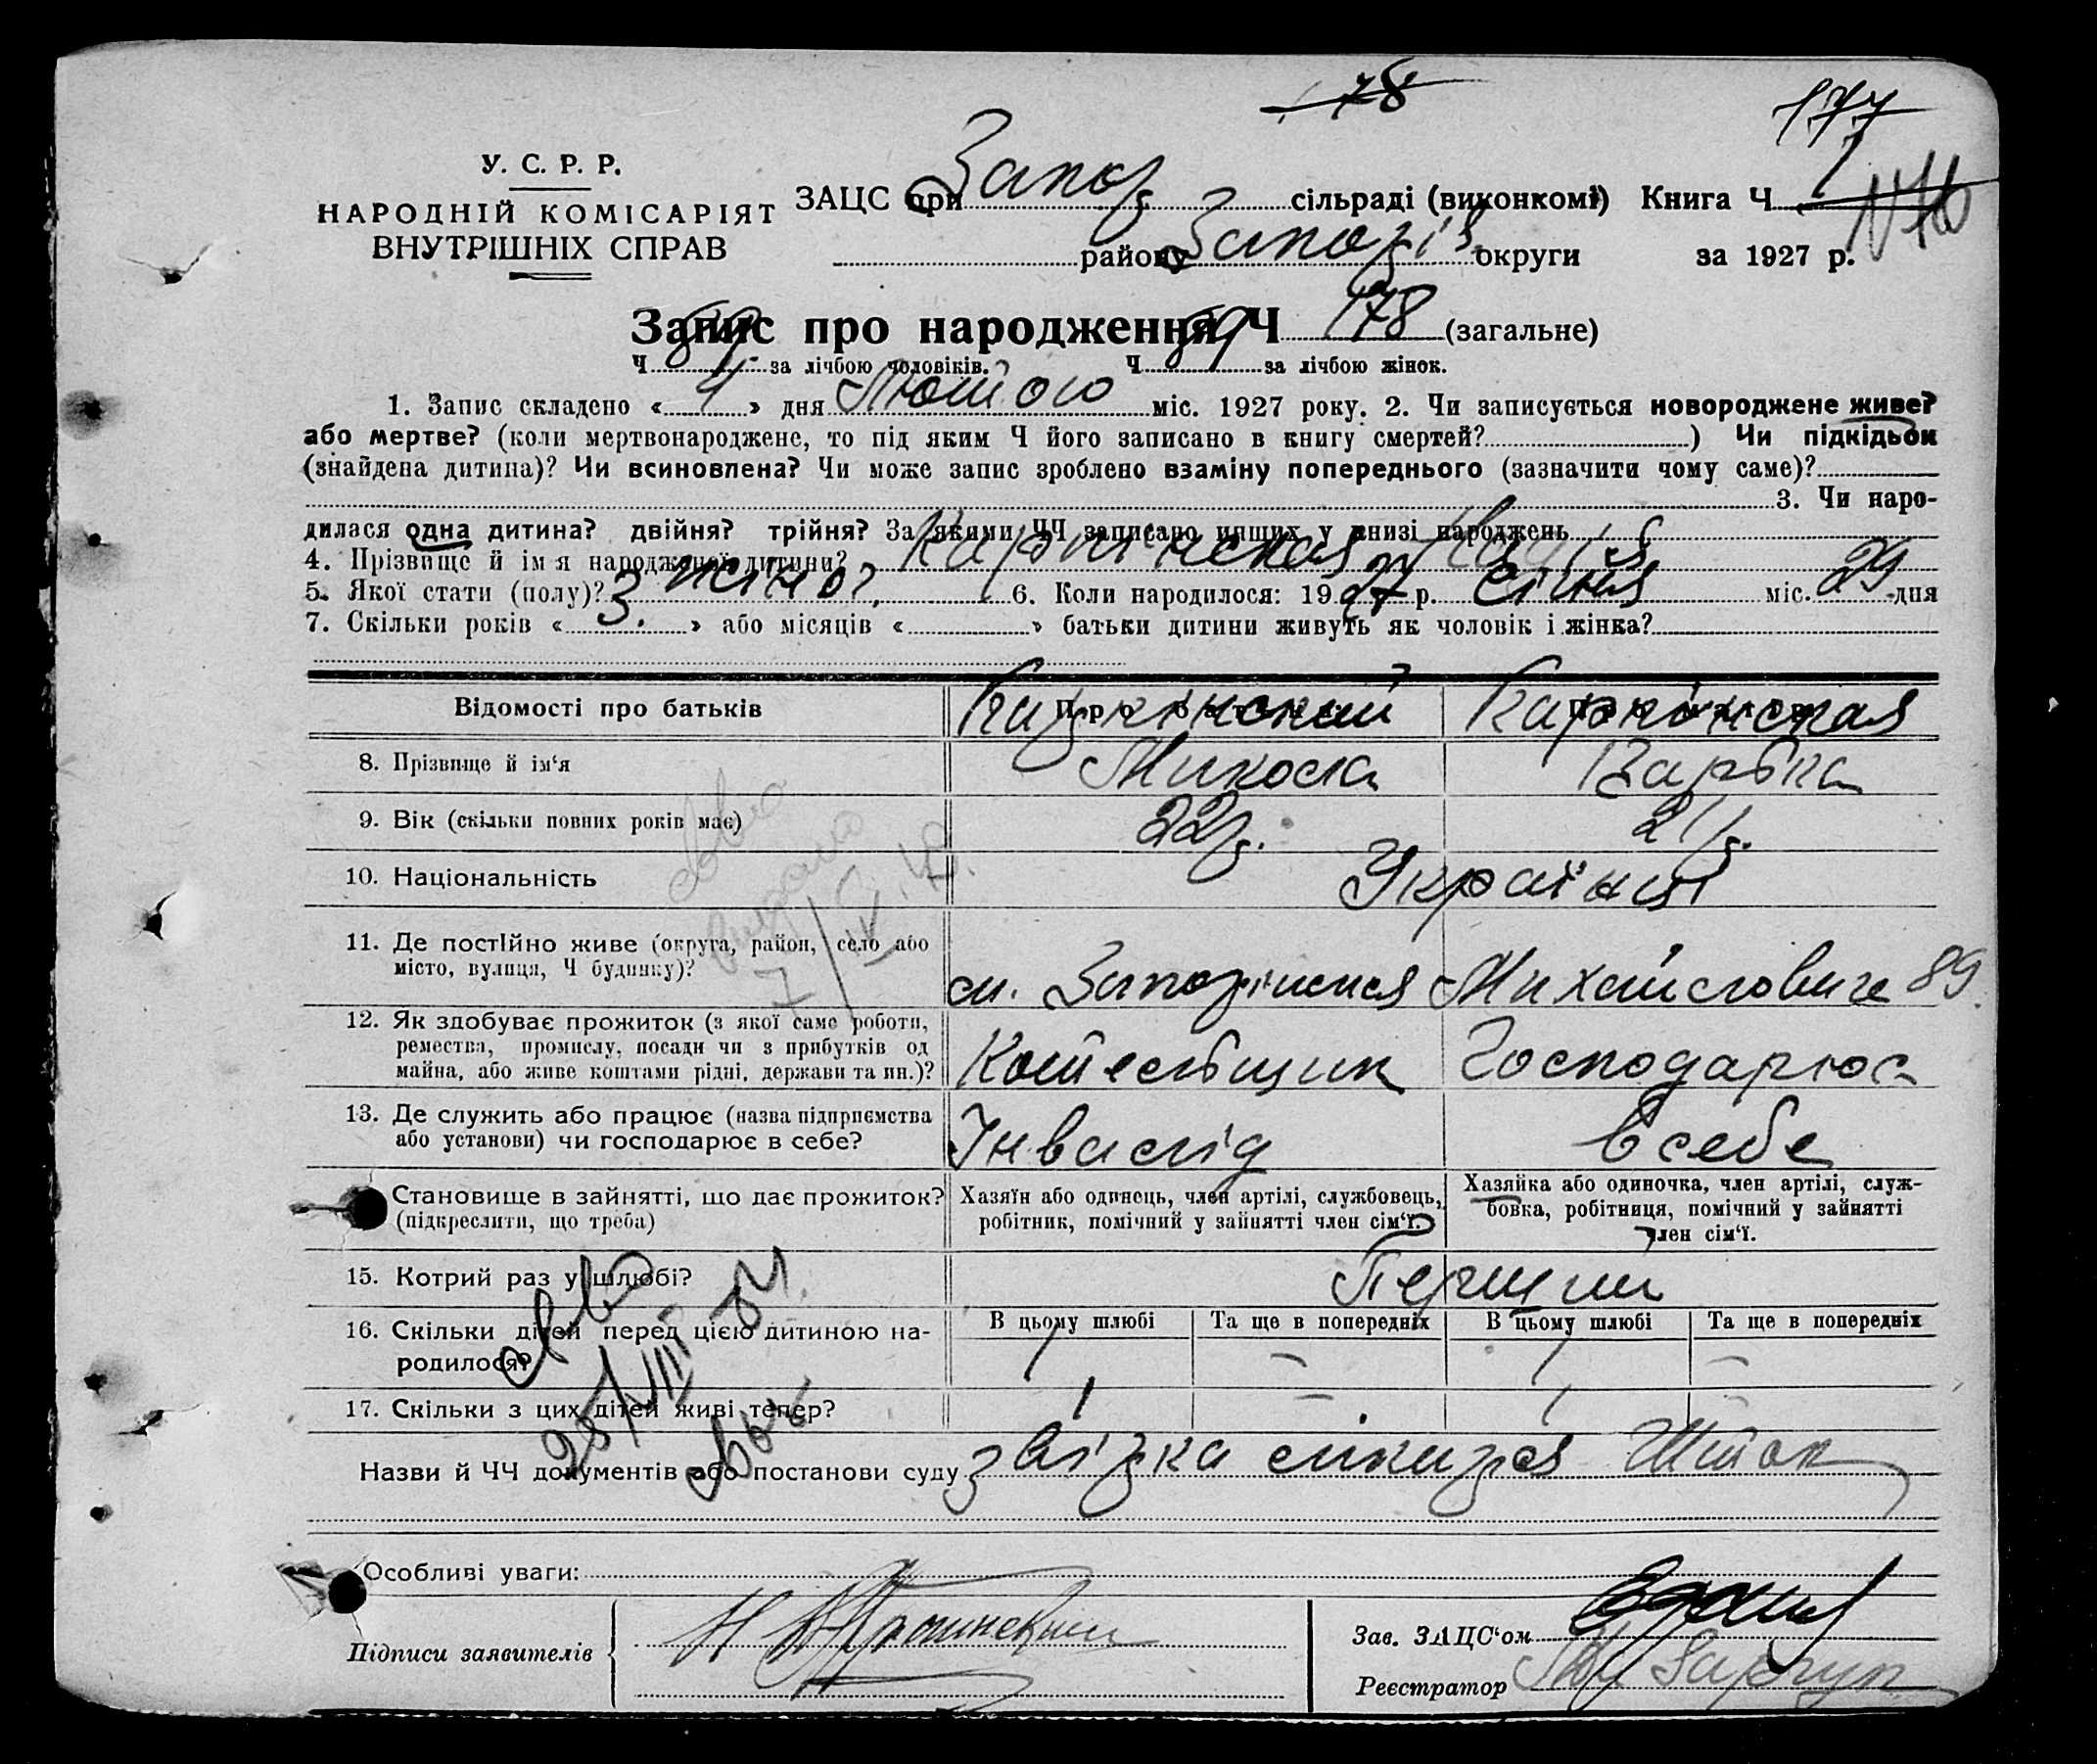 78
177
У. С. Р. Р.
НАРОДНІЙ КОМІСАРІЯТ
ВНУТРІШНІХ СПРАВ
ЗАЦС при Запоз сільраді (виконкомі) Книга Ч 1
району Запоріз округи за 1927 р.
Запис про народження Ч 178 (загальне)
Ч 89 за лічбою чоловіків. Ч 89 за лічбою жінок.
1. Запис складено « 4 » дня Лютого міс. 1927 року. 2. Чи записується новороджене живе?
або мертве? (коли мертвонароджене, то під яким Ч його записано в книгу смертей? ) Чи підкідьок
(знайдена дитина)? Чи всиновлена? Чи може запис зроблено взаміну попереднього (зазначити чому саме)?
3. Чи наро-
дилася одна дитина? двійня? трійня? За якими ЧЧ записано инших у книзі народжень
4. Прізвище й ім'я народженої дитини?
5. Якої стати (полу)? жіно?. 6. Коли народилося: 1927 р. січня міс. 29 дня
7. Скільки років « 3. » або місяців « » батьки дитини живуть як чоловік і жінка?
Відомості про батьків
8. Прізвище й ім'я Микола Варька
9. Вік (скільки повних років має) 22р. 21р.
10. Національність Україньці
11. Де постійно живе (округа, район, село або
місто, вулиця, Ч будинку)? м. Запоріжжя Михайловича 89.
12. Як здобуває прожиток (з якої саме роботи,
ремества, промислу, посади чи з прибутків од
майна, або живе коштами рідні, держави та ин.)? Котельщик Господарює
13. Де служить або працює (назва підприємства
або установи) чи господарює в себе? Інвалід в себе
Становище в зайнятті, що дає прожиток?
(підкреслити, що треба)
Хазяїн або одинець, член артілі, службовець,
робітник, помічний у зайнятті член сім'ї.
Хазяйка або одиночка, член артілі, служ-
бовка, робітниця, помічний у зайнятті
член сім'ї.
15. Котрий раз у шлюбі? Перший
В цьому шлюбі Та ще в попередніх В цьому шлюбі Та ще в попередніх
16. Скільки дітей перед цією дитиною на-
родилося? 1 — 1 —
17. Скільки з цих дітей живі тепер? 1 — 1
Назви й ЧЧ документів або постанови суду звізка лікаря
Особливі уваги:
Підписи заявителів
Зав. ЗАЦС'ом
Реєстратор